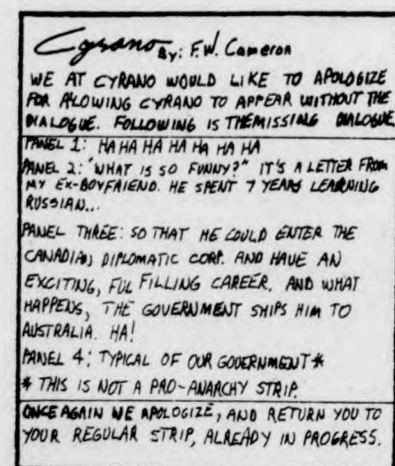 Cyrano By: F.W. Cameron
WE AT CYRANO WOULD LIKE TO APOLOGIZE
FOR ALOWING CYRANO TO APPEAR WITHOUT THE
DIALOGUE. FOLLOWING IS THE MISSING DIALOGUE
PANEL 1: HA HA HA HA HA HA HA
PANEL 2: "WHAT IS SO FUNNY?" IT'S A LETTER FROM
MY EX-BOYFRIEND. HE SPENT 7 YEARS LEARNING
RUSSIAN...
PANEL THREE: SO THAT HE COULD ENTER THE
CANADIAN DIPLOMATIC CORP. AND HAVE AN
EXCITING, FUL FILLING CAREER, AND WHAT
HAPPENS, THE GOVERNMENT SHIPS HIM TO
AUSTRALIA. HA!
PANEL 4: TYPICAL OF OUR GOVERNMENT*
* THIS IS NOT A PRO-ANARCHY STRIP.
ONCE AGAIN WE APOLOGIZE, AND RETURN YOU TO
YOUR REGULAR STRIP, ALREADY IN PROGRESS.